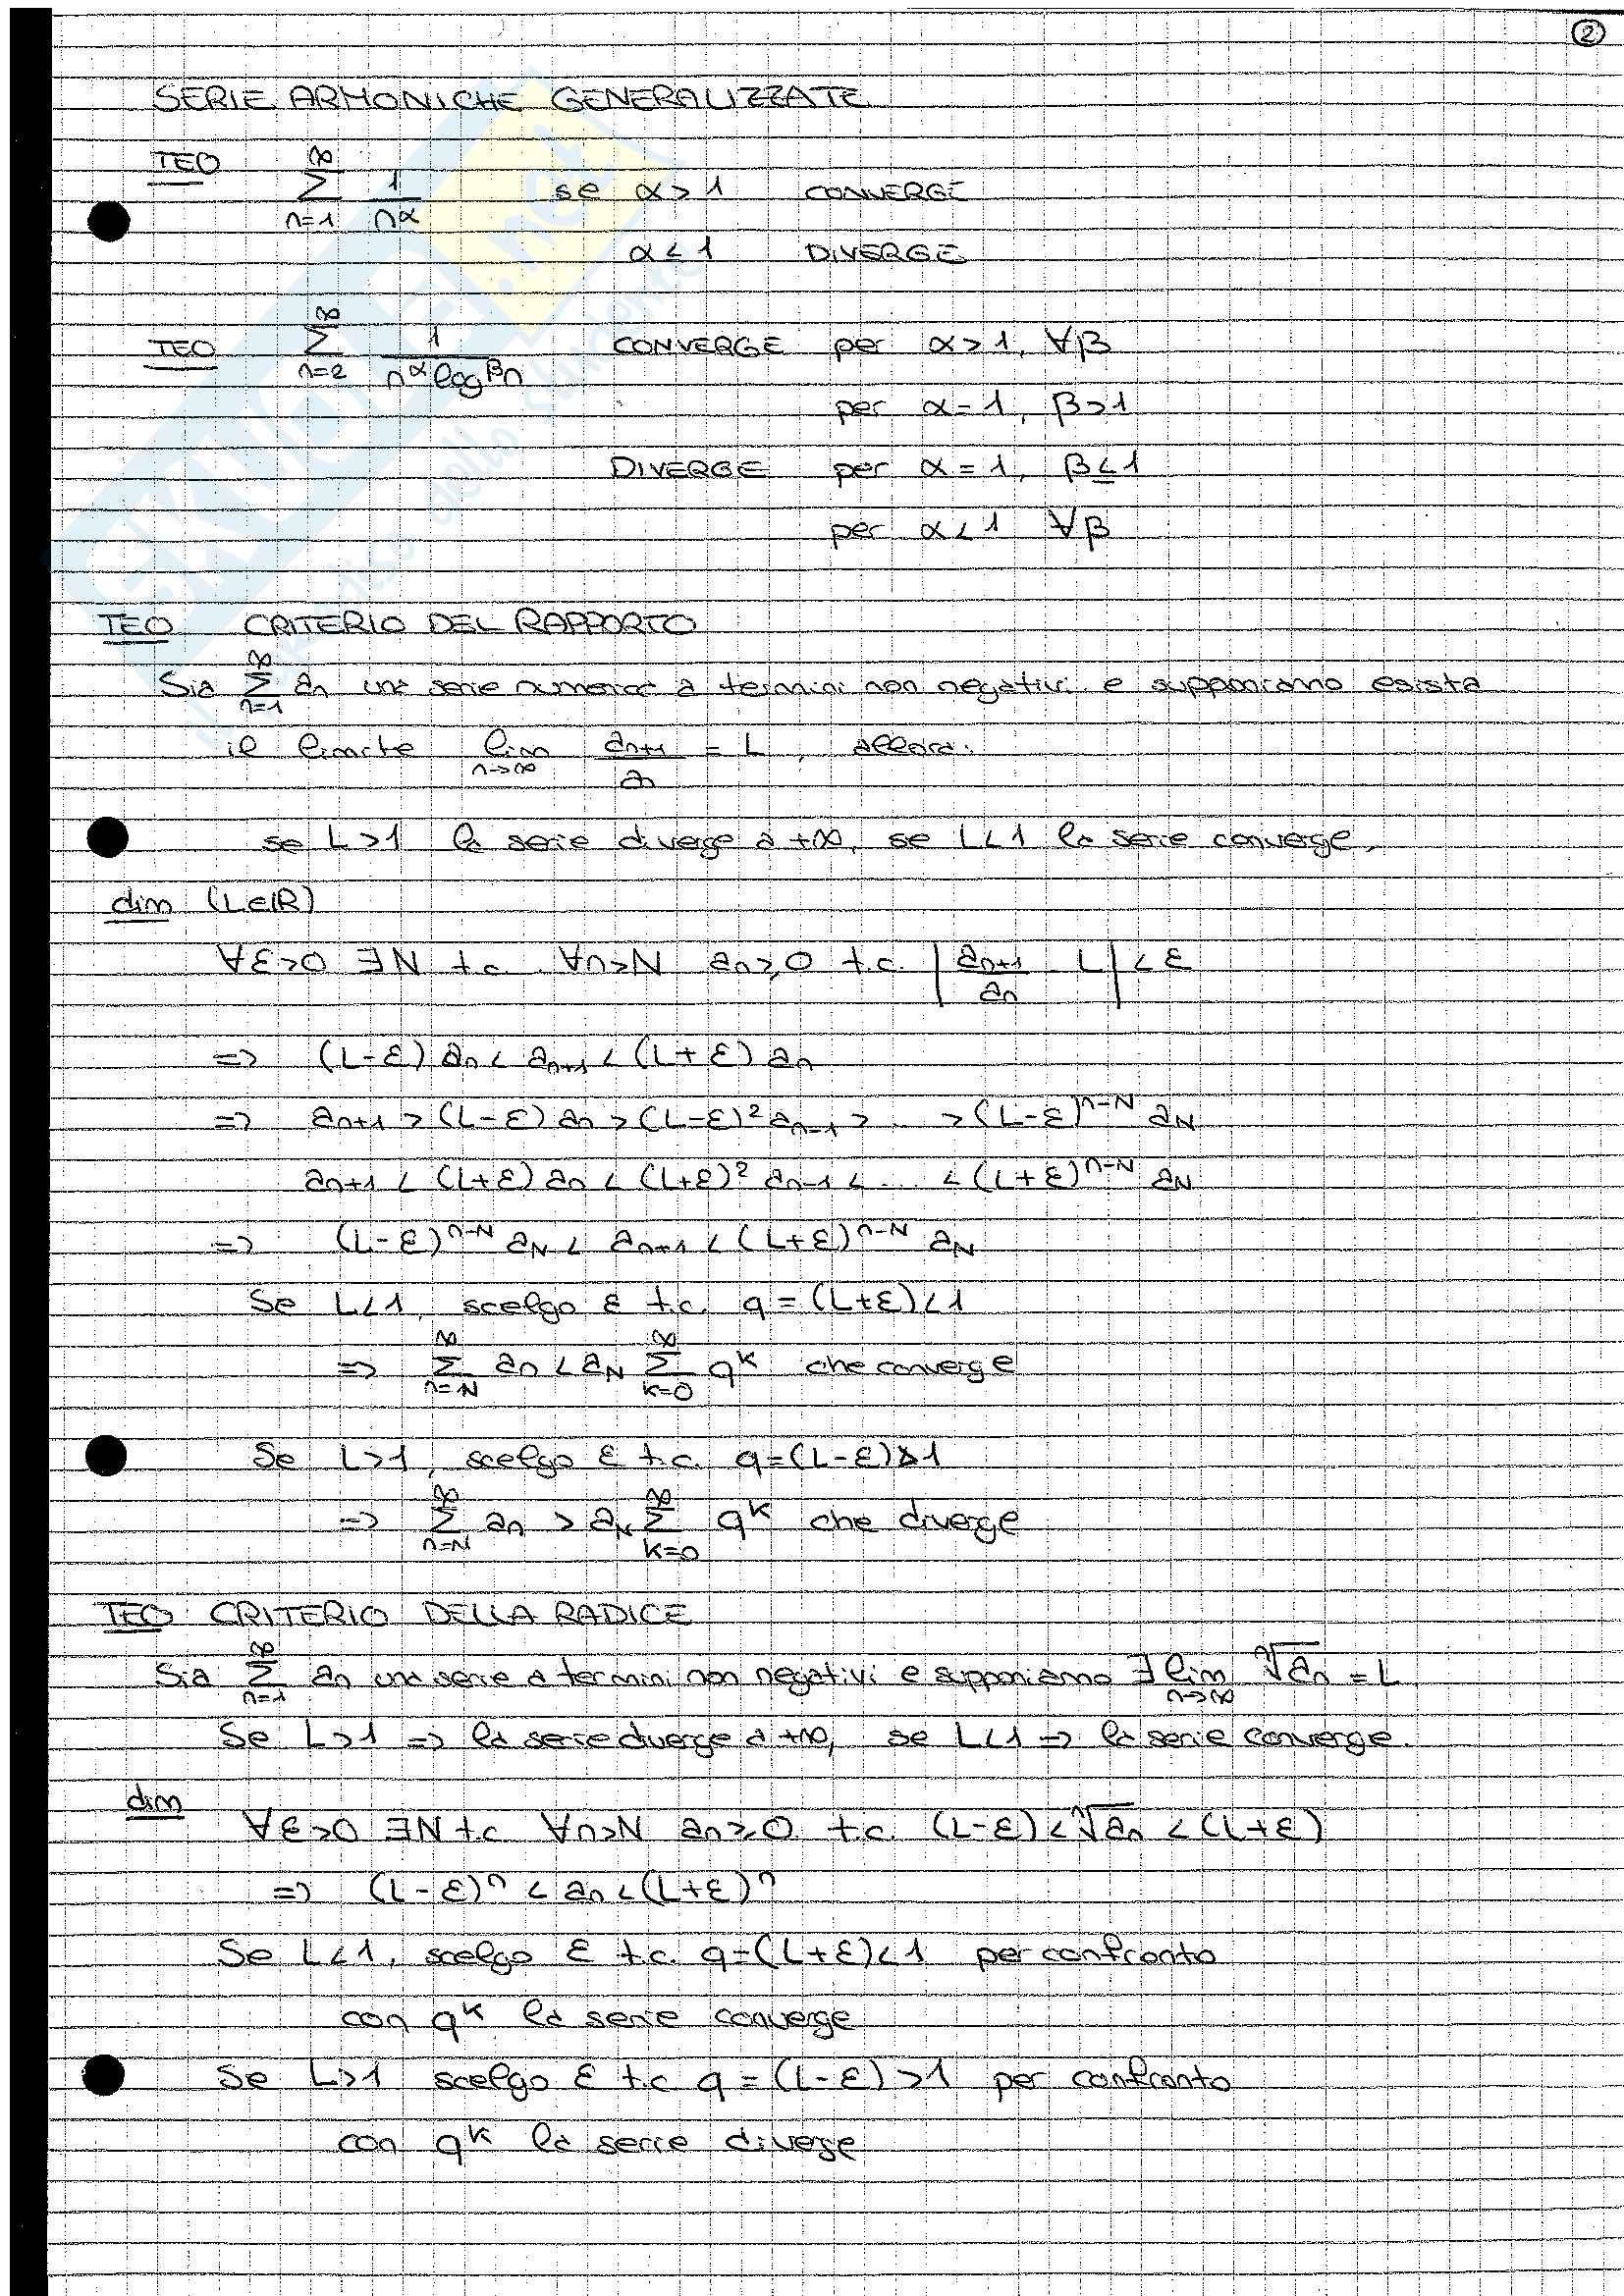 2
SERIE ARMONICHE GENERALIZZATE
TEO ∞∑n=1 1/n^α se α>1 CONVERGE
α<1 DIVERGE
TEO ∞∑n=2 1/(n^α log^β n) CONVERGE per α>1, ∀β
per α=1, β>1
DIVERGE per α=1, β≤1
per α<1 ∀β
TEO CRITERIO DEL RAPPORTO
Sia ∞∑n=1 an una serie numerica a termini non negativi e supponiamo esista
il limite lim n→∞ an+1/an = L, allora:
se L>1 la serie diverge a +∞, se L<1 la serie converge.
dim (L∈ℝ)
∀ε>0 ∃N t.c. ∀n>N an≥0 t.c. |an+1/an - L| < ε
=> (L-ε) an < an+1 < (L+ε) an
=> an+1 > (L-ε) an > (L-ε)² an-1 > ... > (L-ε)^(n-N) aN
an+1 < (L+ε) an < (L+ε)² an-1 < ... < (L+ε)^(n-N) aN
=> (L-ε)^(n-N) aN < an+1 < (L+ε)^(n-N) aN
Se L<1, scelgo ε t.c. q = (L+ε)<1
=> ∞∑n=N an < aN ∞∑k=0 q^k che converge
Se L>1, scelgo ε t.c. q=(L-ε)>1
=> ∞∑n=N an > aN ∞∑k=0 q^k che diverge
TEO CRITERIO DELLA RADICE
Sia ∞∑n=1 an una serie a termini non negativi e supponiamo ∃ lim n→∞ ⁿ√an = L
Se L>1 => la serie diverge a +∞, se L<1 => la serie converge.
dim ∀ε>0 ∃N t.c. ∀n>N an≥0 t.c. (L-ε) < ⁿ√an < (L+ε)
=> (L-ε)^n < an < (L+ε)^n
Se L<1, scelgo ε t.c. q=(L+ε)<1 per confronto
con q^k la serie converge
Se L>1 scelgo ε t.c. q = (L-ε) >1 per confronto
con q^k la serie diverge